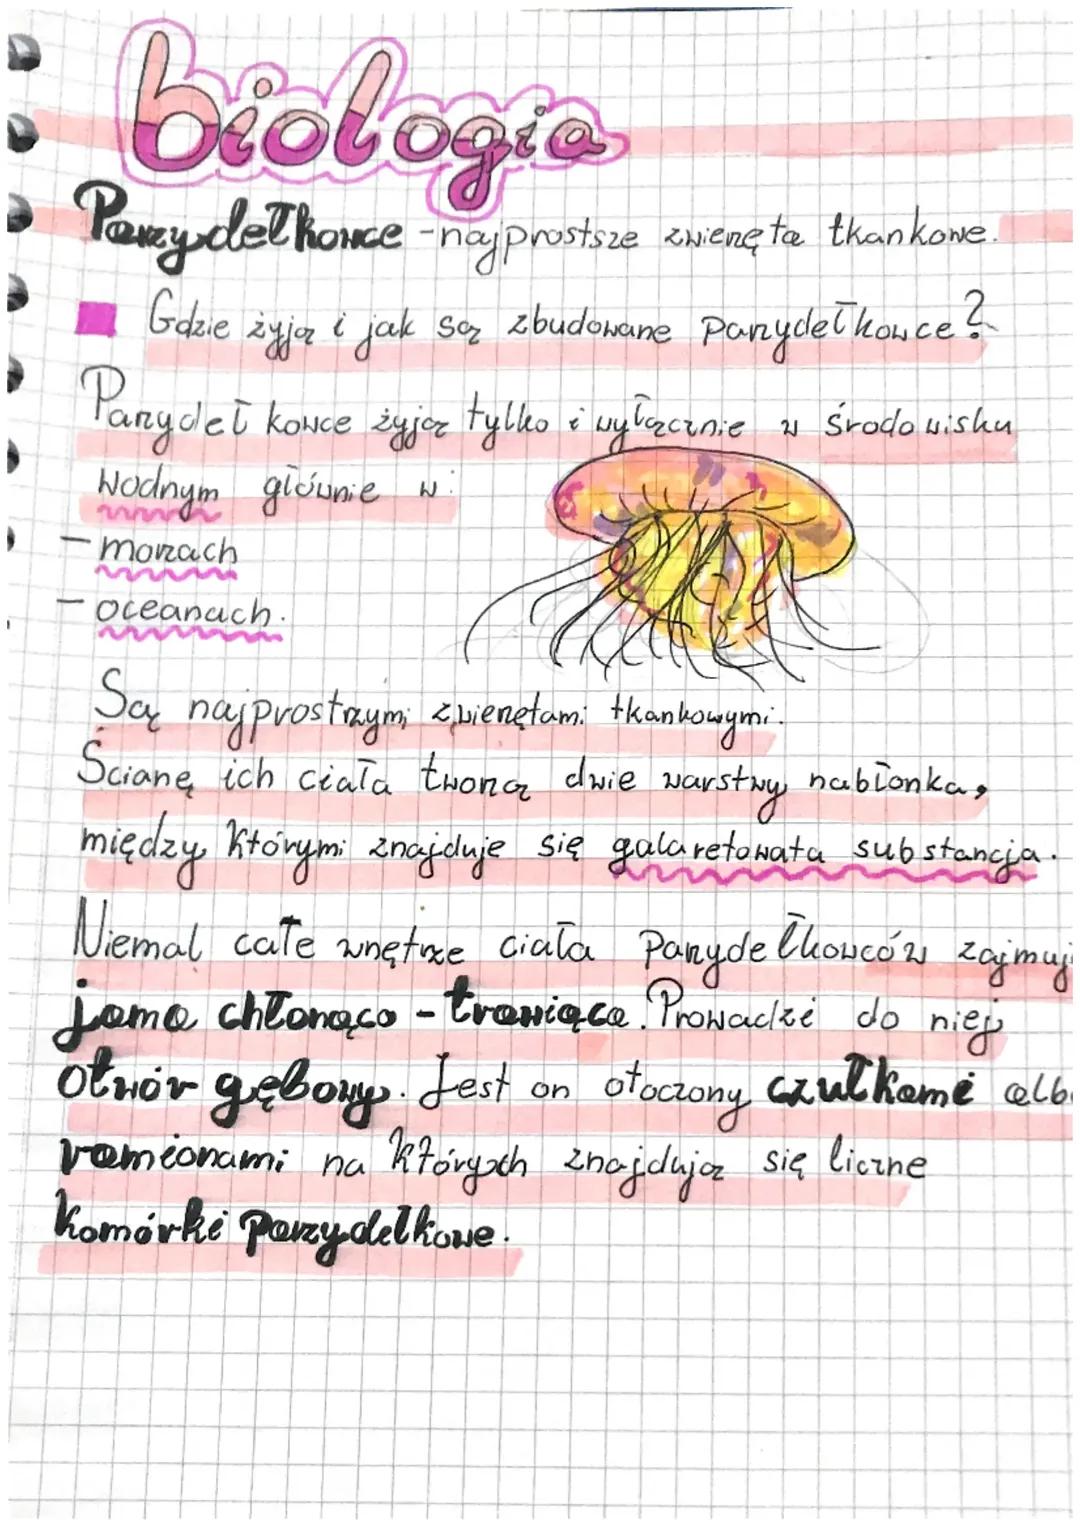 biologia
Parzydełkowce - najprostsze zwierzęta tkankowe.
Gdzie żyją i jak są zbudowane parzydełkowce?
Parzydełkowce żyją tylko i wyłącznie w środowisku
wodnym głównie w:
- morzach
- oceanach.
Są najprostrzymi zwierzętami tkankowymi.
Ścianę ich ciała tworzą dwie warstwy nabłonka,
między którymi znajduje się galaretowata substancja.
Niemal całe wnętrze ciała parzydełkowców zajmuj
jama chłonąco - trawiąca. Prowadzi do niej
otwór gębowy. Jest on otoczony czułkami alb
ramionami na których znajdują się liczne
komórki parzydełkowe.